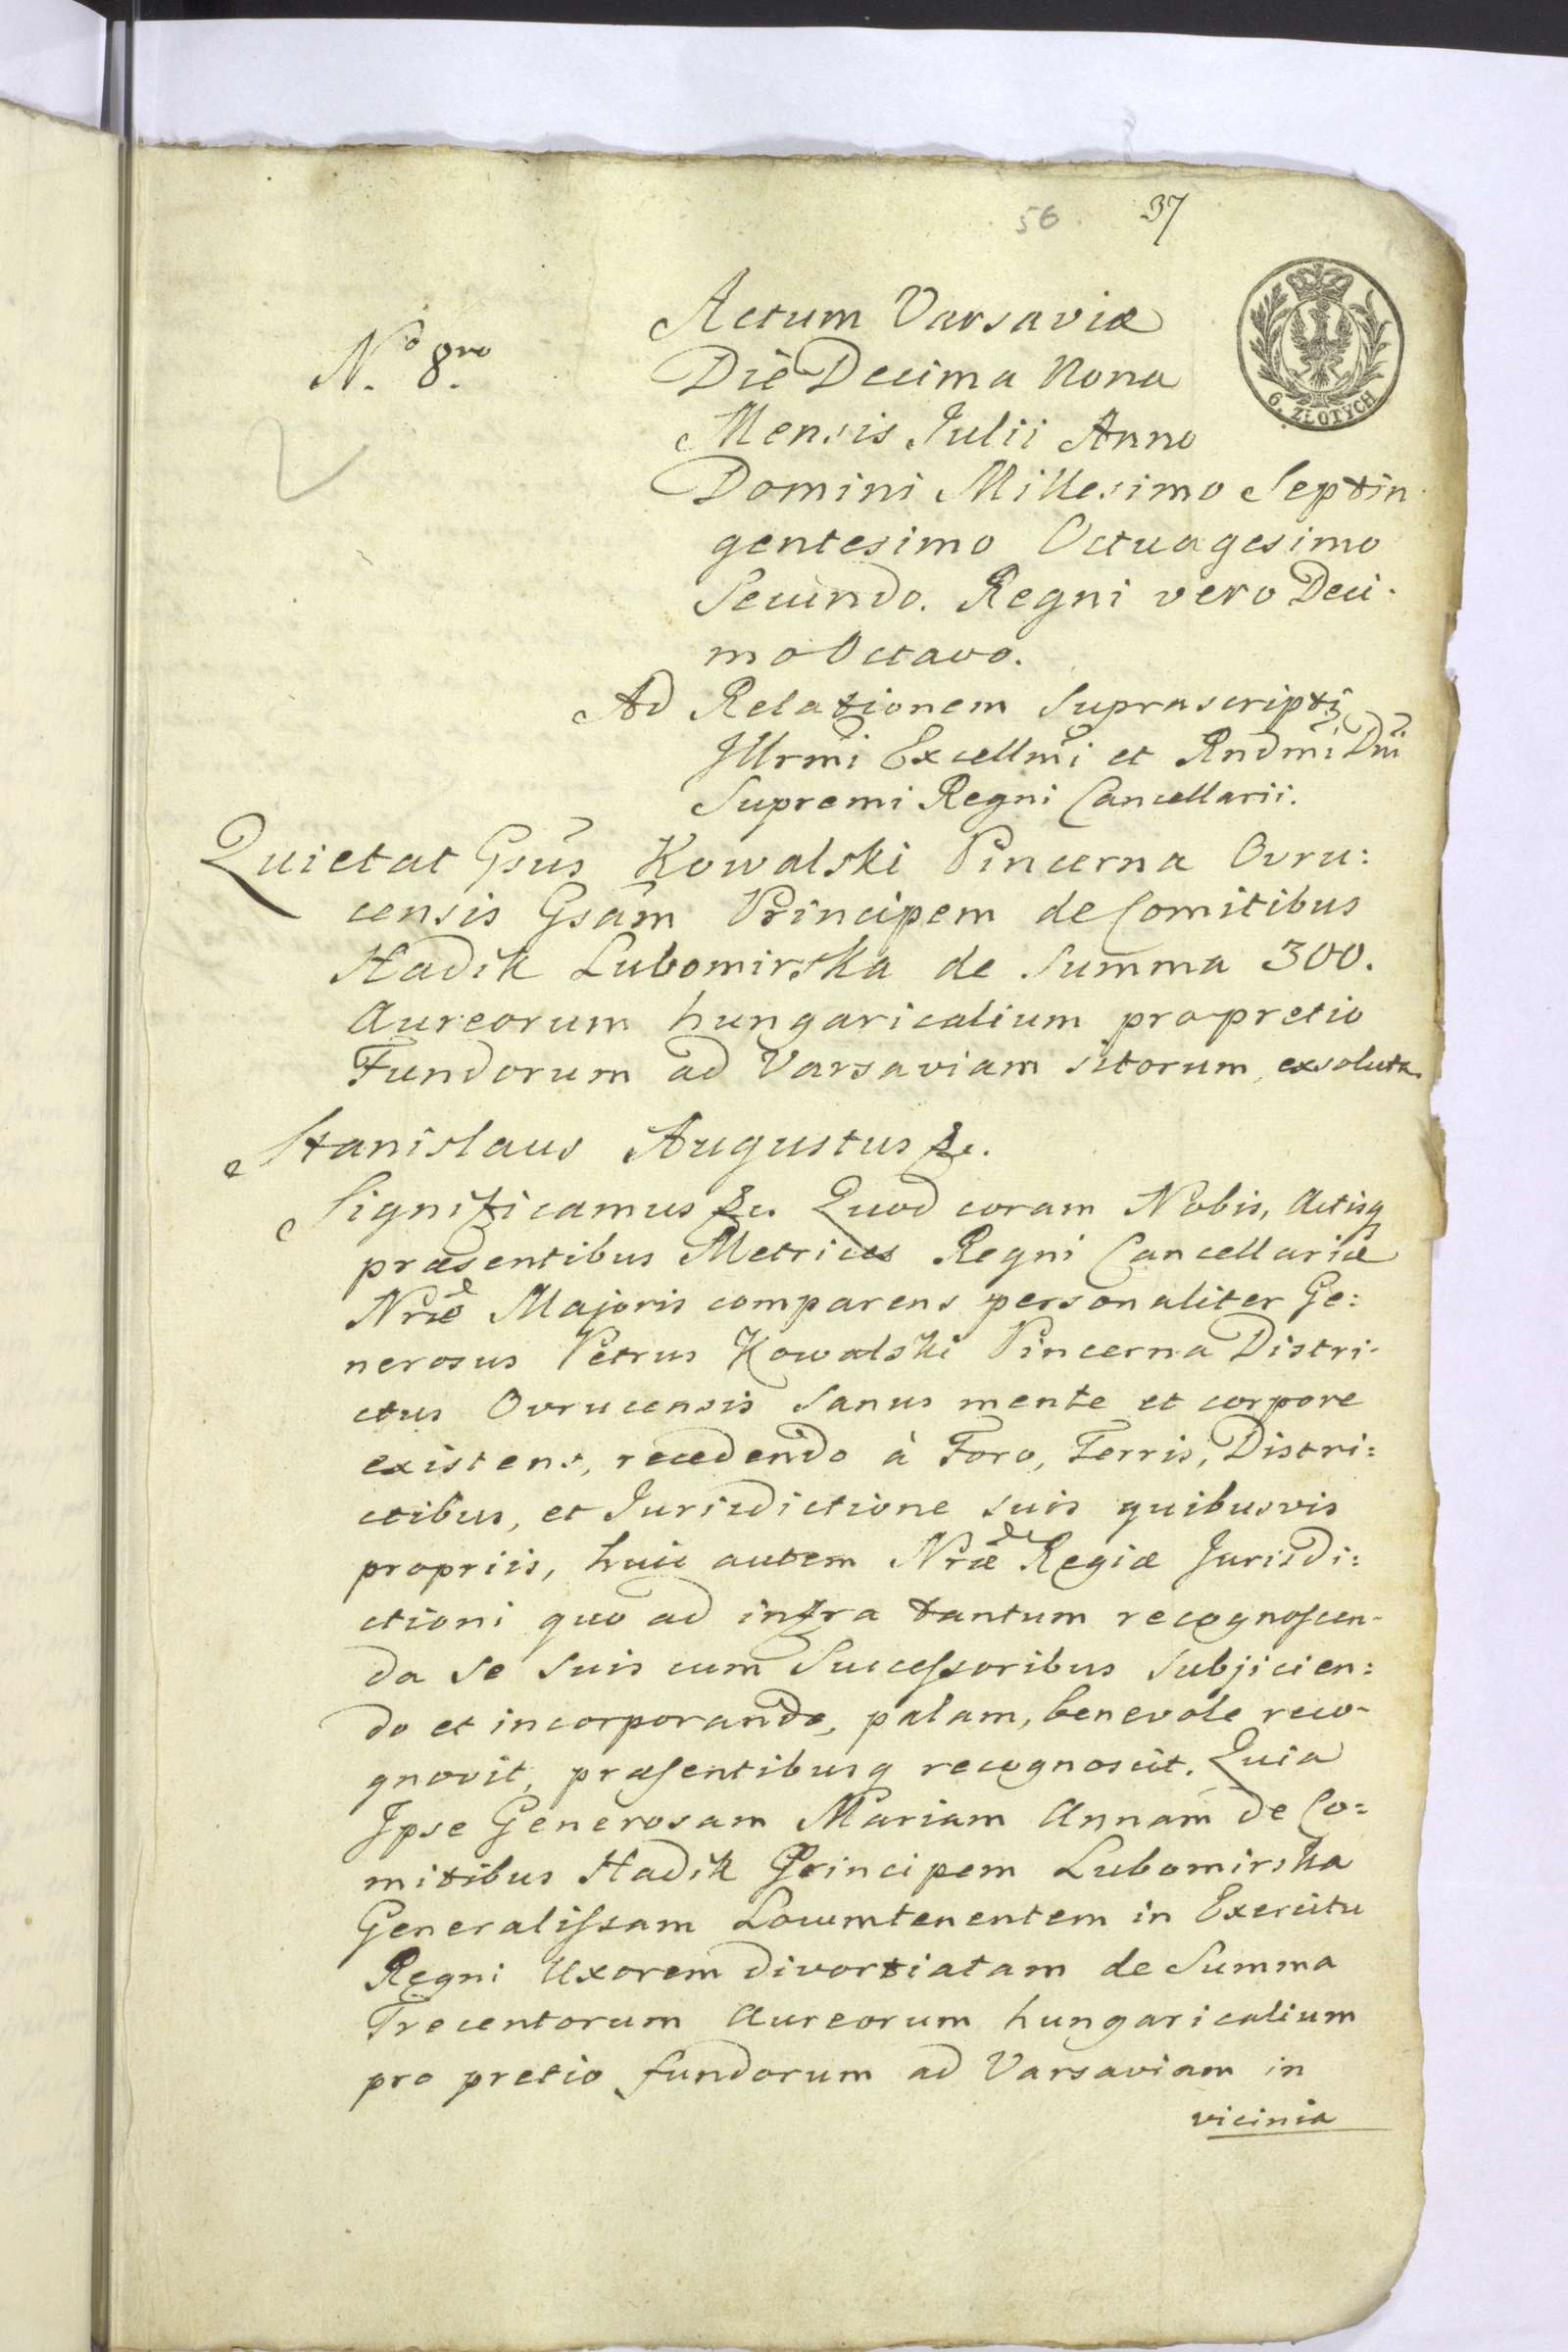 56. 37
Actum Varsaviæ
N.o 8.vo
Die Decima Nona
6. ZŁOTYCH
Mensis Julii Anno
Domini Millesimo Septin
gentesimo Octuagesimo
Secundo. Regni vero Deci-
mo Octavo.
Ad Relationem Suprascripti
Illrmi Excellmi et Rndmi Dni
Supremi Regni Cancellarii.
Quietat Gsus Kowalski Pincerna Ovru:
censis Gsam Principem de Comitibus
Hadik Lubomirska de Summa 300.
Aureorum hungaricalium pro pretio
Fundorum ad Varsaviam sitorum, exsoluta.
Stanislaus Augustus &c.
Significamus &c. Quod coram Nobis, Actisq
præsentibus Metrices Regni Cancellariæ
Nræ Majoris comparens personaliter Ge:
nerosus Petrus Kowalski Pincerna Distri-
ctus Ovrucensis Sanus mente et corpore
existens, recedendo à Foro, Terris, Distri:
ctibus, et Jurisdictione suis quibusvis
propriis, huic autem Nræ Regiæ Jurisdi:
ctioni quo ad infra tantum recognoscen-
da se suis cum Successoribus Subjicien:
do et incorporando, palam, benevole reco-
gnovit, præsentibusq recognoscit. Quia
Ipse Generosam Mariam Annam de Co:
mitibus Hadik Principem Lubomirska
Generalissam Locumtenentem in Exercitu
Regni Uxorem divortiatam de Summa
Trecentorum Aureorum hungaricalium
pro pretio fundorum ad Varsaviam in
vicinia